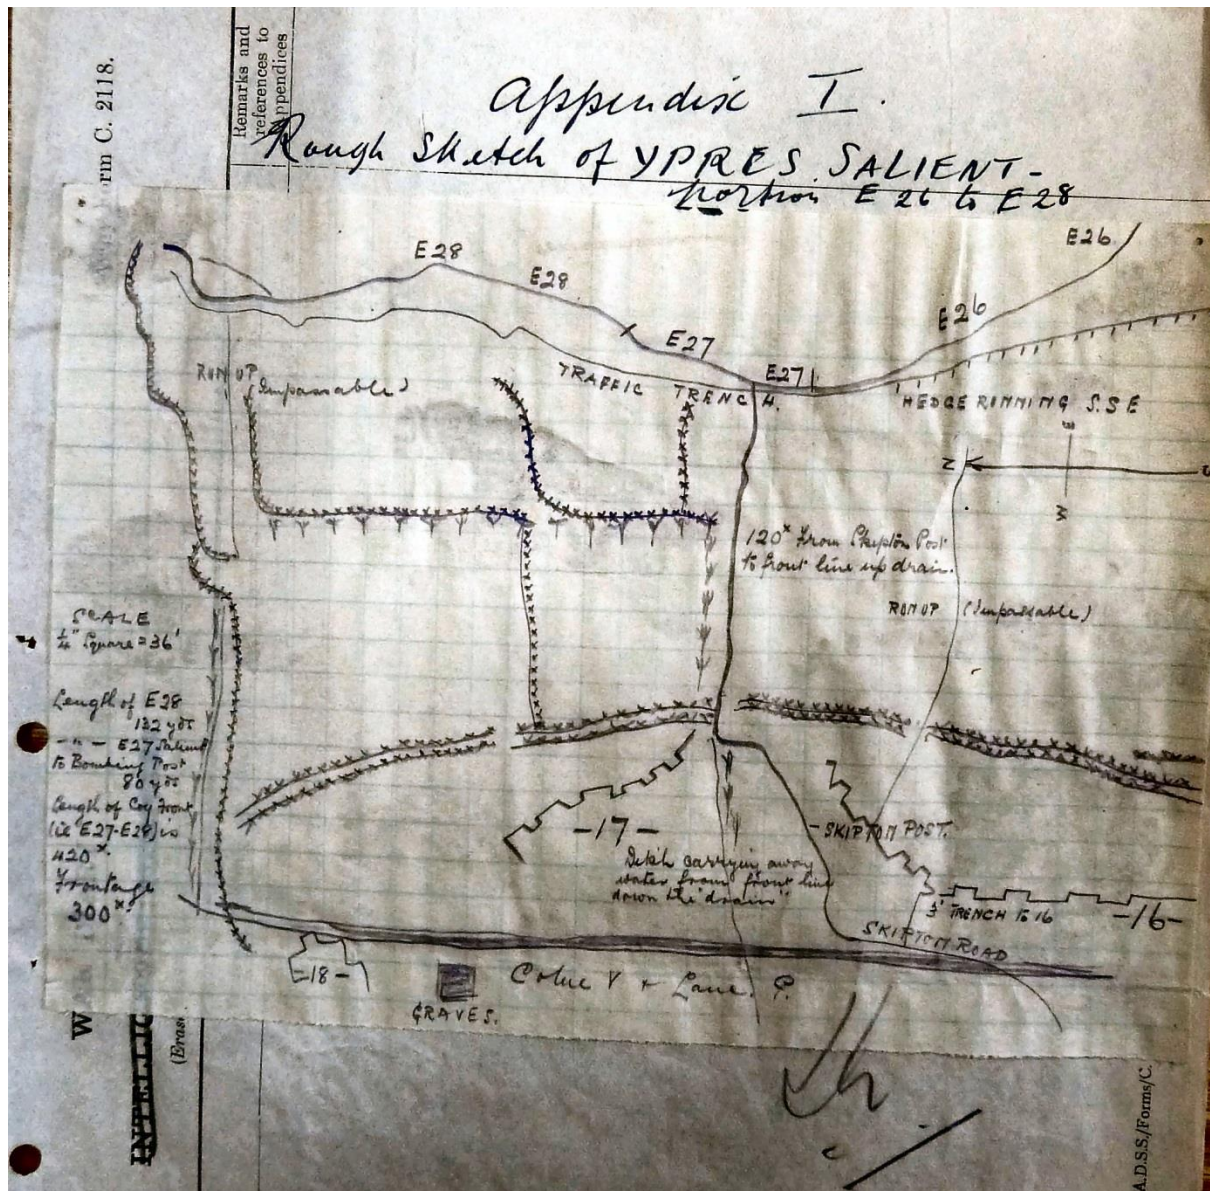 Remarks and
references to
Appendices
rm C. 2118.
Appendix I.
Rough Sketch of YPRES SALIENT -
portion E 26 to E 28
E 28
E 28
E 27
E 27
E 26
E 26
TRAFFIC TRENCH.
HEDGE RUNNING S.S E
RUN UP (Impassable)
N
E
W
120ˣ From Skipton Post
to front line up drain.
RUN UP (Impassable)
SCALE
¼" Square = 36'
Length of E 28
132 yds
- " - E 27 Salient
to Bombing Post
80 yds
Length of Coy Front
(ie E27-E28) is
420ˣ.
Frontage
300ˣ.
-17-
- SKIPTON POST.
Ditch carrying away
water from front line
down the "drain"
3' TRENCH TO 16
-16-
SKIPTON ROAD
-18-
GRAVES.
Colne V
Lane
W
INTELLIG
(Eras
A.D.S.S./Forms/C.